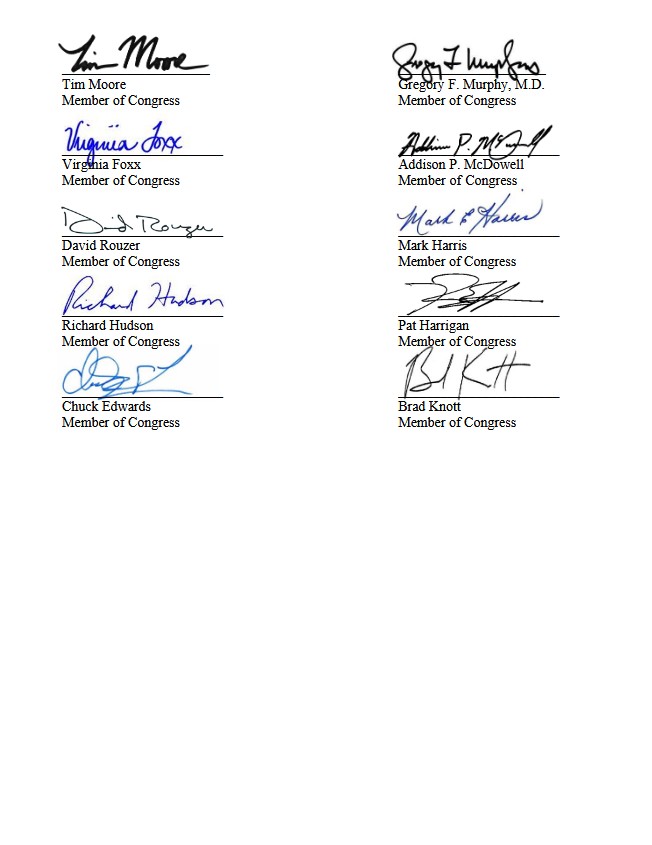 Tim Moore
Tim Moore
Member of Congress
Gregory F. Murphy
Gregory F. Murphy, M.D.
Member of Congress
Virginia Foxx
Virginia Foxx
Member of Congress
Addison P. McDowell
Addison P. McDowell
Member of Congress
David Rouzer
David Rouzer
Member of Congress
Mark E Harris
Mark Harris
Member of Congress
Richard Hudson
Richard Hudson
Member of Congress
Pat Harrigan
Member of Congress
Chuck Edwards
Member of Congress
Brad Knott
Member of Congress